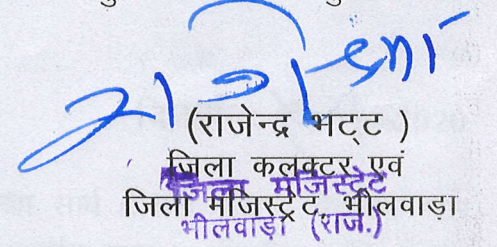 (राजेन्द्र भट्ट )
जिला कलक्टर एवं
जिला मजिस्ट्रेट
जिला मजिस्ट्रेट, भीलवाड़ा
भीलवाड़ा (राज.)